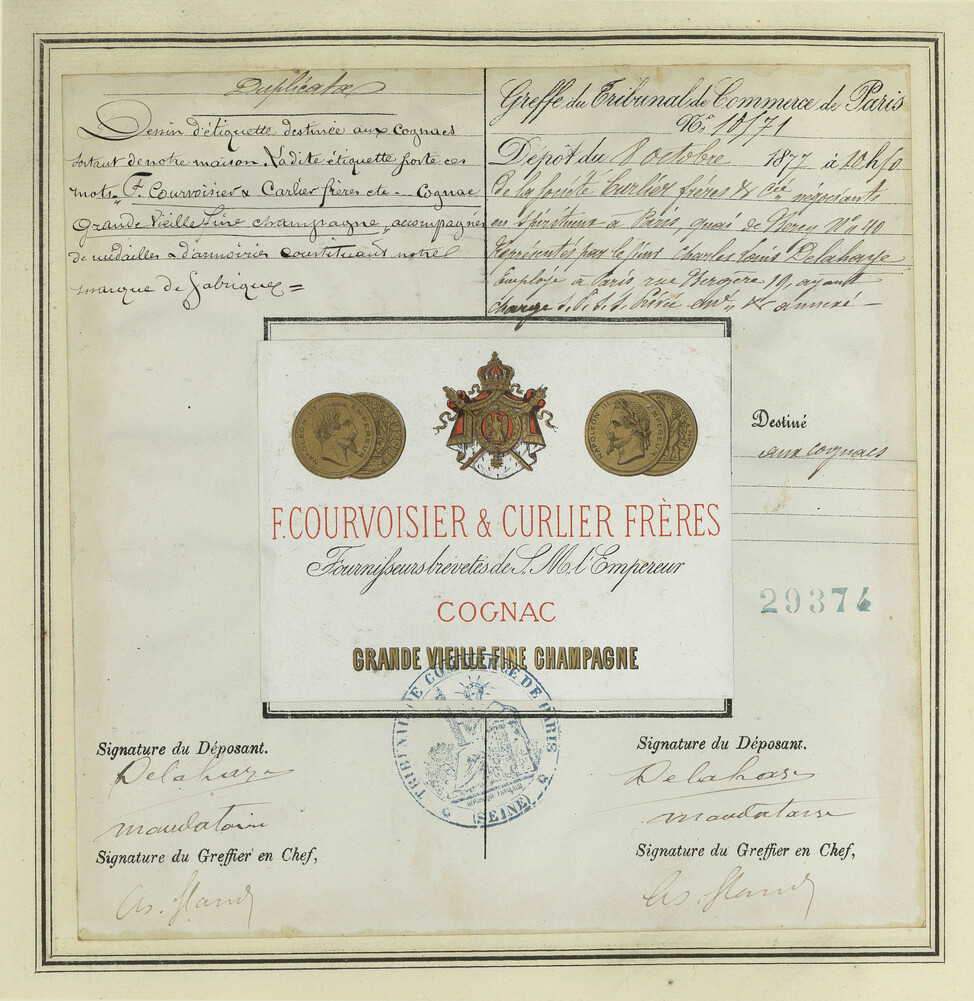 Duplicata
Dessin d'étiquette destinée aux cognacs
sortant de notre maison. Ladite étiquette porte ces
mots "F. Courvoisier & Carlier frères cte - Cognac
Grande Vieille fine champagne", accompagnés
de médailles & d'armoiries constituant notre
marque de fabrique =
Greffe du Tribunal de Commerce de Paris
N.º 10171
Dépôt du 8 octobre 1877 à
de la société Curlier frères & Cie négociants
en spiritueux à Paris, quai de Bercy Nº 40
Représentés par le sieur Charles Louis Delahaye
Employé à Paris rue Bergère 19, ayant
charge & annexé
NAPOLEON III EMPEREUR
NAPOLEON III EMPEREUR
F. COURVOISIER & CURLIER FRÈRES
Fournisseurs brévetés de S. M. l'Empereur
COGNAC
GRANDE VIEILLE FINE CHAMPAGNE
Destiné
aux cognacs
29374
TRIBUNAL DE COMMERCE DE PARIS
(SEINE)
Signature du Déposant.
Delahaye
mandataire
Signature du Greffier en Chef,
Signature du Déposant.
Delahaye
mandataire
Signature du Greffier en Chef,